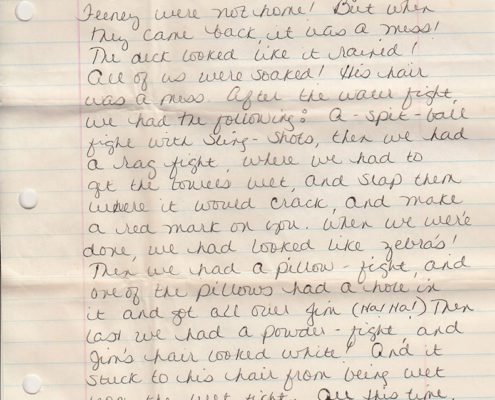 Feeney were not home! But when
they came back, it was a mess!
The deck looked like it rained!
All of us were soaked! His hair
was a mess. After the water fight,
we had the following: A - spit - ball
fight with sling - shots, then we had
a rag fight, where we had to
get the towels wet, and slap them
where it would crack, and make
a red mark on you. When we were
done, we had looked like zebra's!
Then we had a pillow - fight, and
one of the pillows had a hole in
it and got all over Jim (Ha! Ha!) Then
last we had a powder - fight, and
Jim's hair looked white! And it
stuck to his hair from being wet
the wet fight. All this time,